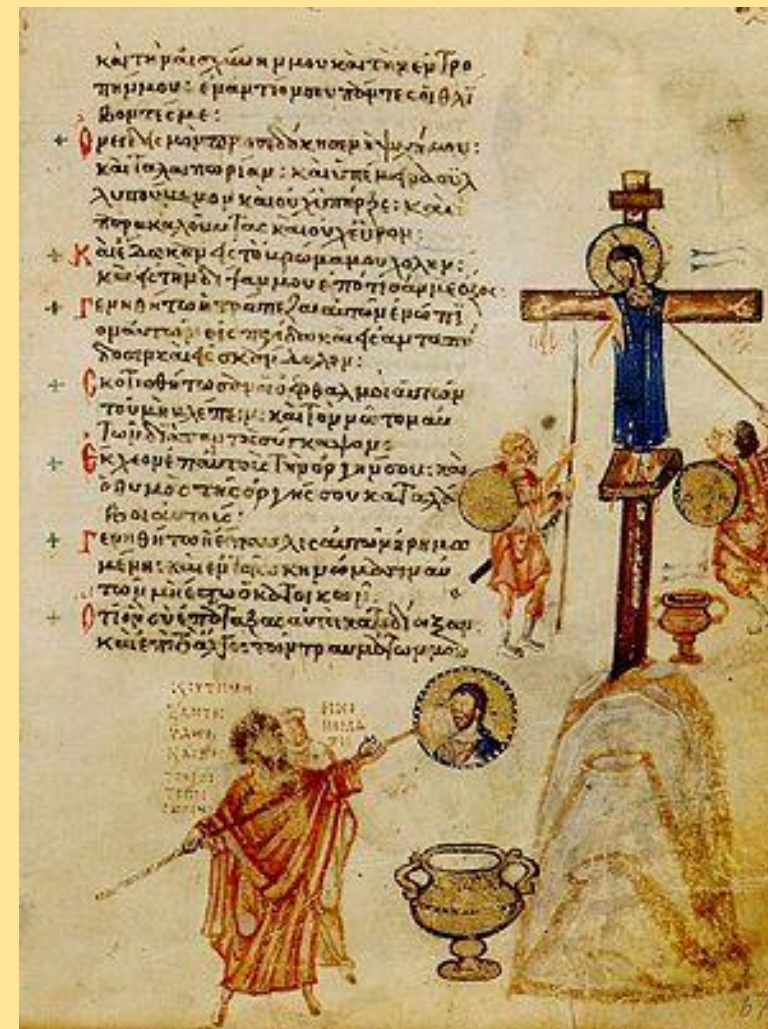 καὶ τὴν αἰσχύνην μου καὶ τὴν ἐντρο
πήν μου: ἐναντίον σου πάντες οἱ θλί
βοντές με:
Ὀνειδισμὸν προσεδόκησεν ἡ ψυχή μου:
καὶ ταλαιπωρίαν: καὶ ὑπέμεινα συλ
λυπούμενον καὶ οὐχ ὑπῆρξε: καὶ
παρακαλοῦντας καὶ οὐχ εὗρον:
Καὶ ἔδωκαν εἰς τὸ βρῶμα μου χολήν:
καὶ εἰς τὴν δίψαν μου ἐπότισάν με ὄξος:
Γενηθήτω ἡ τράπεζα αὐτῶν ἐνώπι
ον αὐτῶν εἰς παγίδα καὶ εἰς ἀνταπό
δοσιν καὶ εἰς σκάνδαλον:
Σκοτισθήτωσαν οἱ ὀφθαλμοὶ αὐτῶν
τοῦ μὴ βλέπειν: καὶ τὸν νῶτον αὐ
τῶν διὰ παντὸς σύγκαμψον:
Ἔκχεον ἐπ' αὐτοὺς τὴν ὀργήν σου: καὶ
ὁ θυμὸς τῆς ὀργῆς σου καταλά
βοι αὐτούς:
Γενηθήτω ἡ ἔπαυλις αὐτῶν ἠρημω
μένη: καὶ ἐν τοῖς σκηνώμασιν αὐ
τῶν μὴ ἔστω ὁ κατοικῶν:
Ὅτι ὃν σὺ ἐπάταξας αὐτοὶ κατεδίωξαν:
καὶ ἐπὶ τὸ ἄλγος τῶν τραυμάτων μου